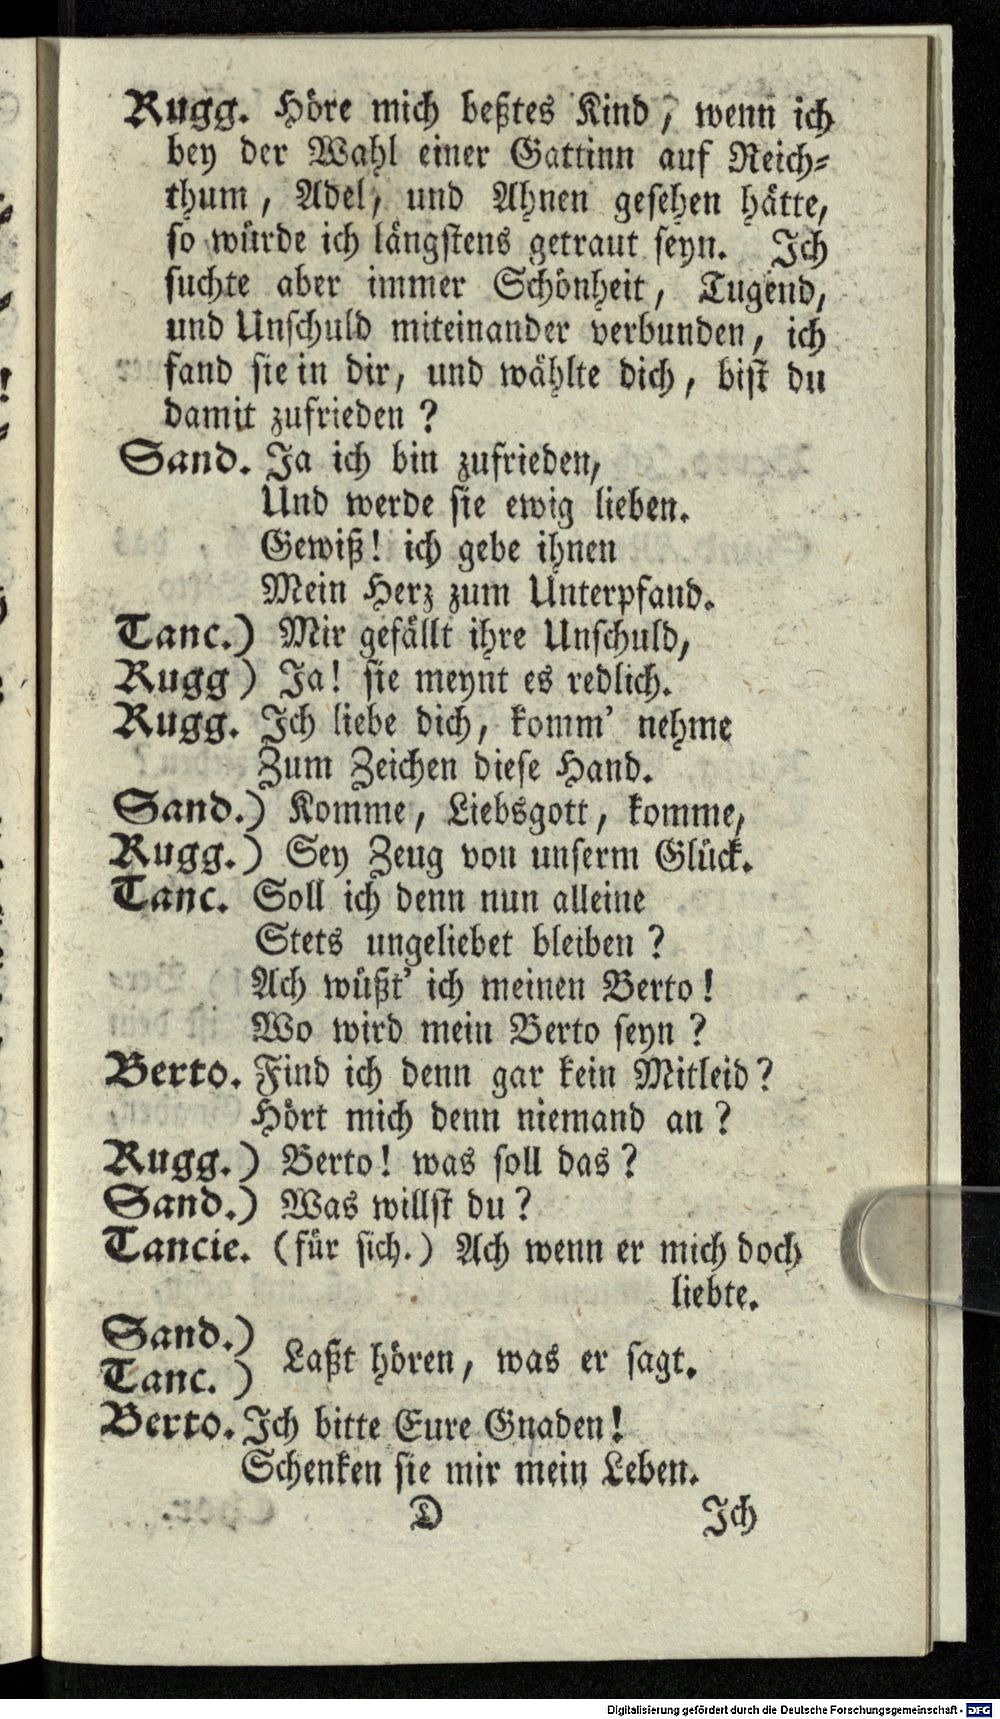 Rugg. Höre mich beßtes Kind, wenn ich
bey der Wahl einer Gattinn auf Reich-
thum, Adel, und Ahnen gesehen hätte,
so würde ich längstens getraut seyn. Ich
suchte aber immer Schönheit, Tugend,
und Unschuld miteinander verbunden, ich
fand sie in dir, und wählte dich, bist du
damit zufrieden?
Sand. Ja ich bin zufrieden,
Und werde sie ewig lieben.
Gewiß! ich gebe ihnen
Mein Herz zum Unterpfand.
Tanc.) Mir gefällt ihre Unschuld,
Rugg) Ja! sie meynt es redlich.
Rugg. Ich liebe dich, komm' nehme
Zum Zeichen diese Hand.
Sand.) Komme, Liebsgott, komme,
Rugg.) Sey Zeug von unserm Glück.
Tanc. Soll ich denn nun alleine
Stets ungeliebet bleiben?
Ach wüßt' ich meinen Berto!
Wo wird mein Berto seyn?
Berto. Find ich denn gar kein Mitleid?
Hört mich denn niemand an?
Rugg.) Berto! was soll das?
Sand.) Was willst du?
Tancie. (für sich.) Ach wenn er mich doch
liebte.
Sand.)
Tanc.) Laßt hören, was er sagt.
Berto. Ich bitte Eure Gnaden!
Schenken sie mir mein Leben.
D Ich
Digitalisierung gefördert durch die Deutsche Forschungsgemeinschaft - DFG